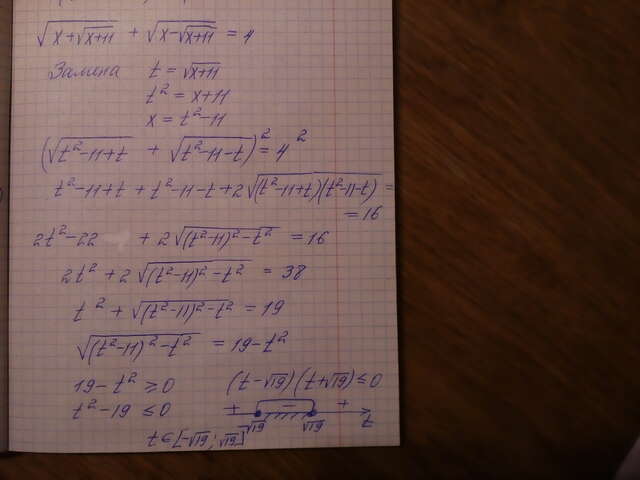 √(x+√(x+11)) + √(x-√(x+11)) = 4
Замена t = √(x+11)
t² = x+11
x = t²-11
(√(t²-11+t) + √(t²-11-t))² = 4²
t²-11+t + t²-11-t + 2√((t²-11+t)(t²-11-t)) =
= 16
2t²-22 + 2√((t²-11)²-t²) = 16
2t² + 2√((t²-11)²-t²) = 38
t² + √((t²-11)²-t²) = 19
√((t²-11)²-t²) = 19-t²
19-t² ≥ 0 (t-√19)(t+√19) ≤ 0
t²-19 ≤ 0 + - + t
-√19 √19
t ∈ [-√19; √19]